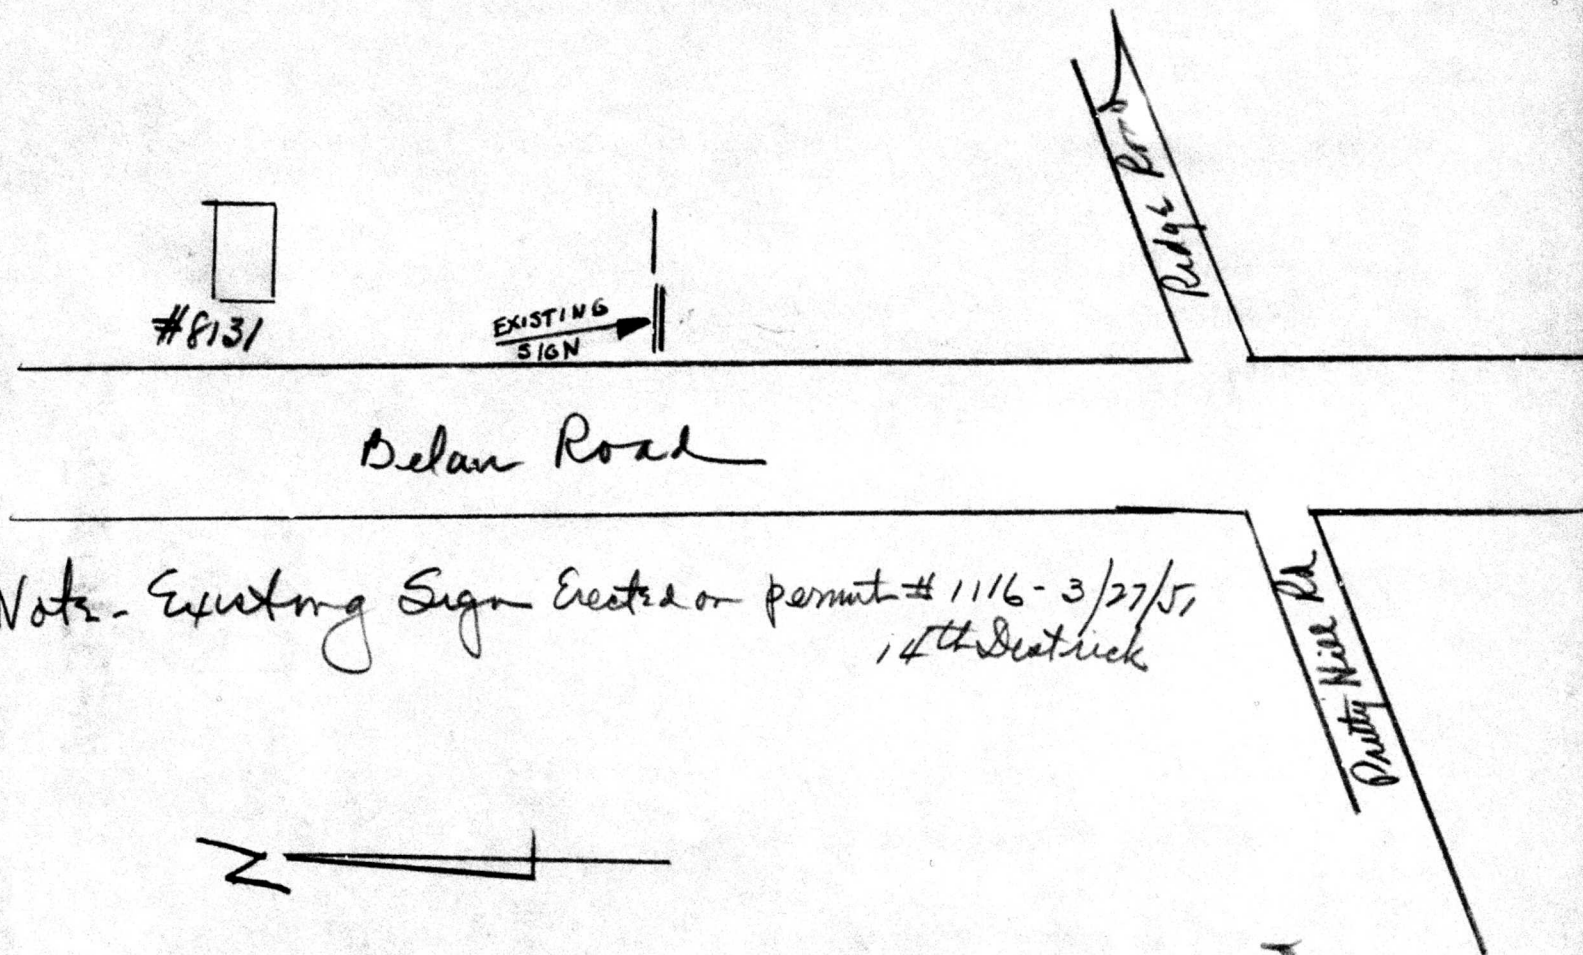 Ridge Road
#8131
EXISTING
SIGN
Belair Road
Note - Existing Sign Erected on permit # 1116 - 3/27/51
14th Destrick
Putty Hill Rd
N